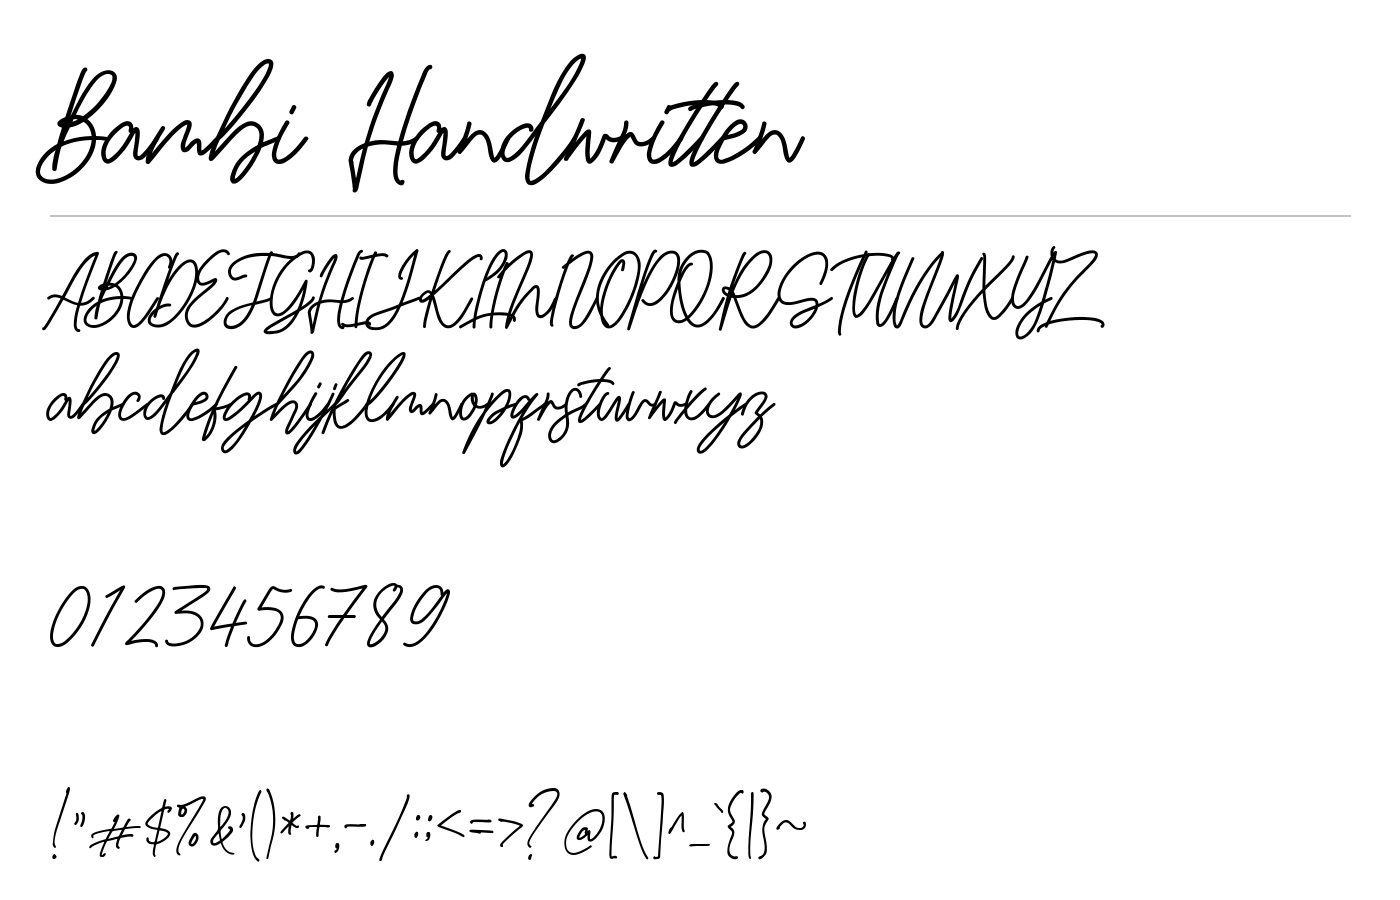 Bambi Handwritten
ABCDEFGHIJKLMNOPQRSTUVWXYZ
abcdefghijklmnopqrstuvwxyz
0123456789
!"#$%&'()*+,-./:;<=>?@[\]^_`{|}~